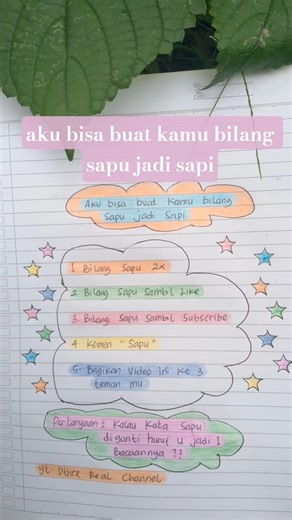 aku bisa buat kamu bilang
sapu jadi sapi
Aku bisa buat kamu bilang
Sapu jadi Sapi
1. Bilang Sapu 2x
2. Bilang Sapu Sambil Like
3. Bilang Sapu Sambil Subscribe
4. Komen "Sapu"
5. Bagikan Video ini ke 3
teman mu
Pertanyaan : Kalau Kata Sapu
diganti huruf u jadi I
Bacaannya ??
yt: Dthre Real Channel